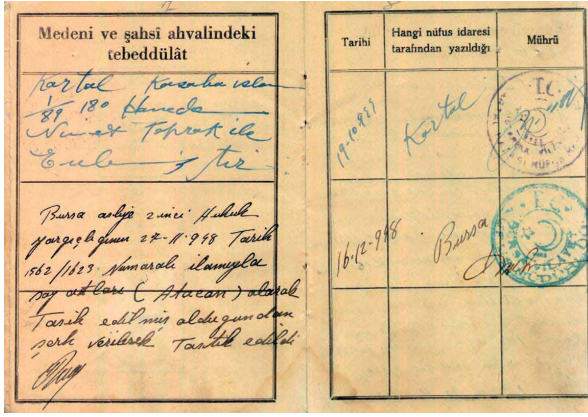 Medeni ve şahsî ahvalindeki
tebeddülât
Kartal Kasaba islam
1/89 180 Hanede
Nimet Toprak ile
Evlenmiştir
Bursa asliye 2 inci Hukuk
yargıçlığının 27-11-948 Tarih
1562/1623 Numaralı ilamıyla
soy adları (Atacan) olarak
Tasih edilmiş olduğundan
şerh verilerek Tastik edildi
Tarihi
Hangi nüfus idaresi
tarafından yazıldığı
Mührü
19-10-941
Kartal
T.C.
16-12-948
Bursa
T.C.